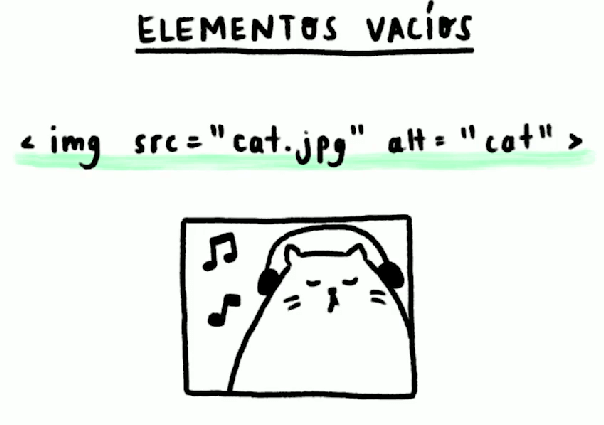 ELEMENTOS VACÍOS
< img src="cat.jpg" alt="cat">